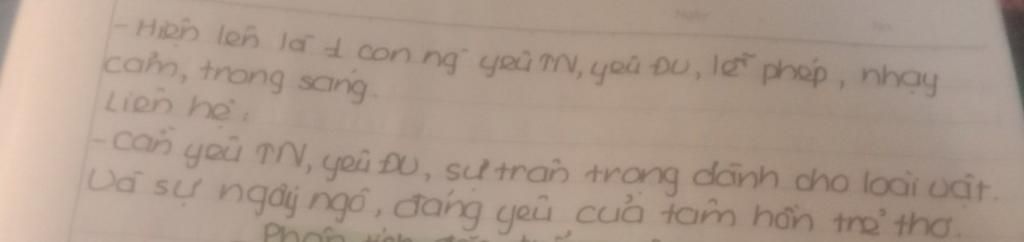 - Hiện lên là 1 con ng yêu TN, yêu ĐV, lễ phép, nhạy
cảm, trong sáng.
Liên hệ:
- Cần yêu TN, yêu ĐV, sự trân trọng dành cho loài vật.
Và sự ngây ngô, đáng yêu của tâm hồn trẻ thơ.
Phân tích